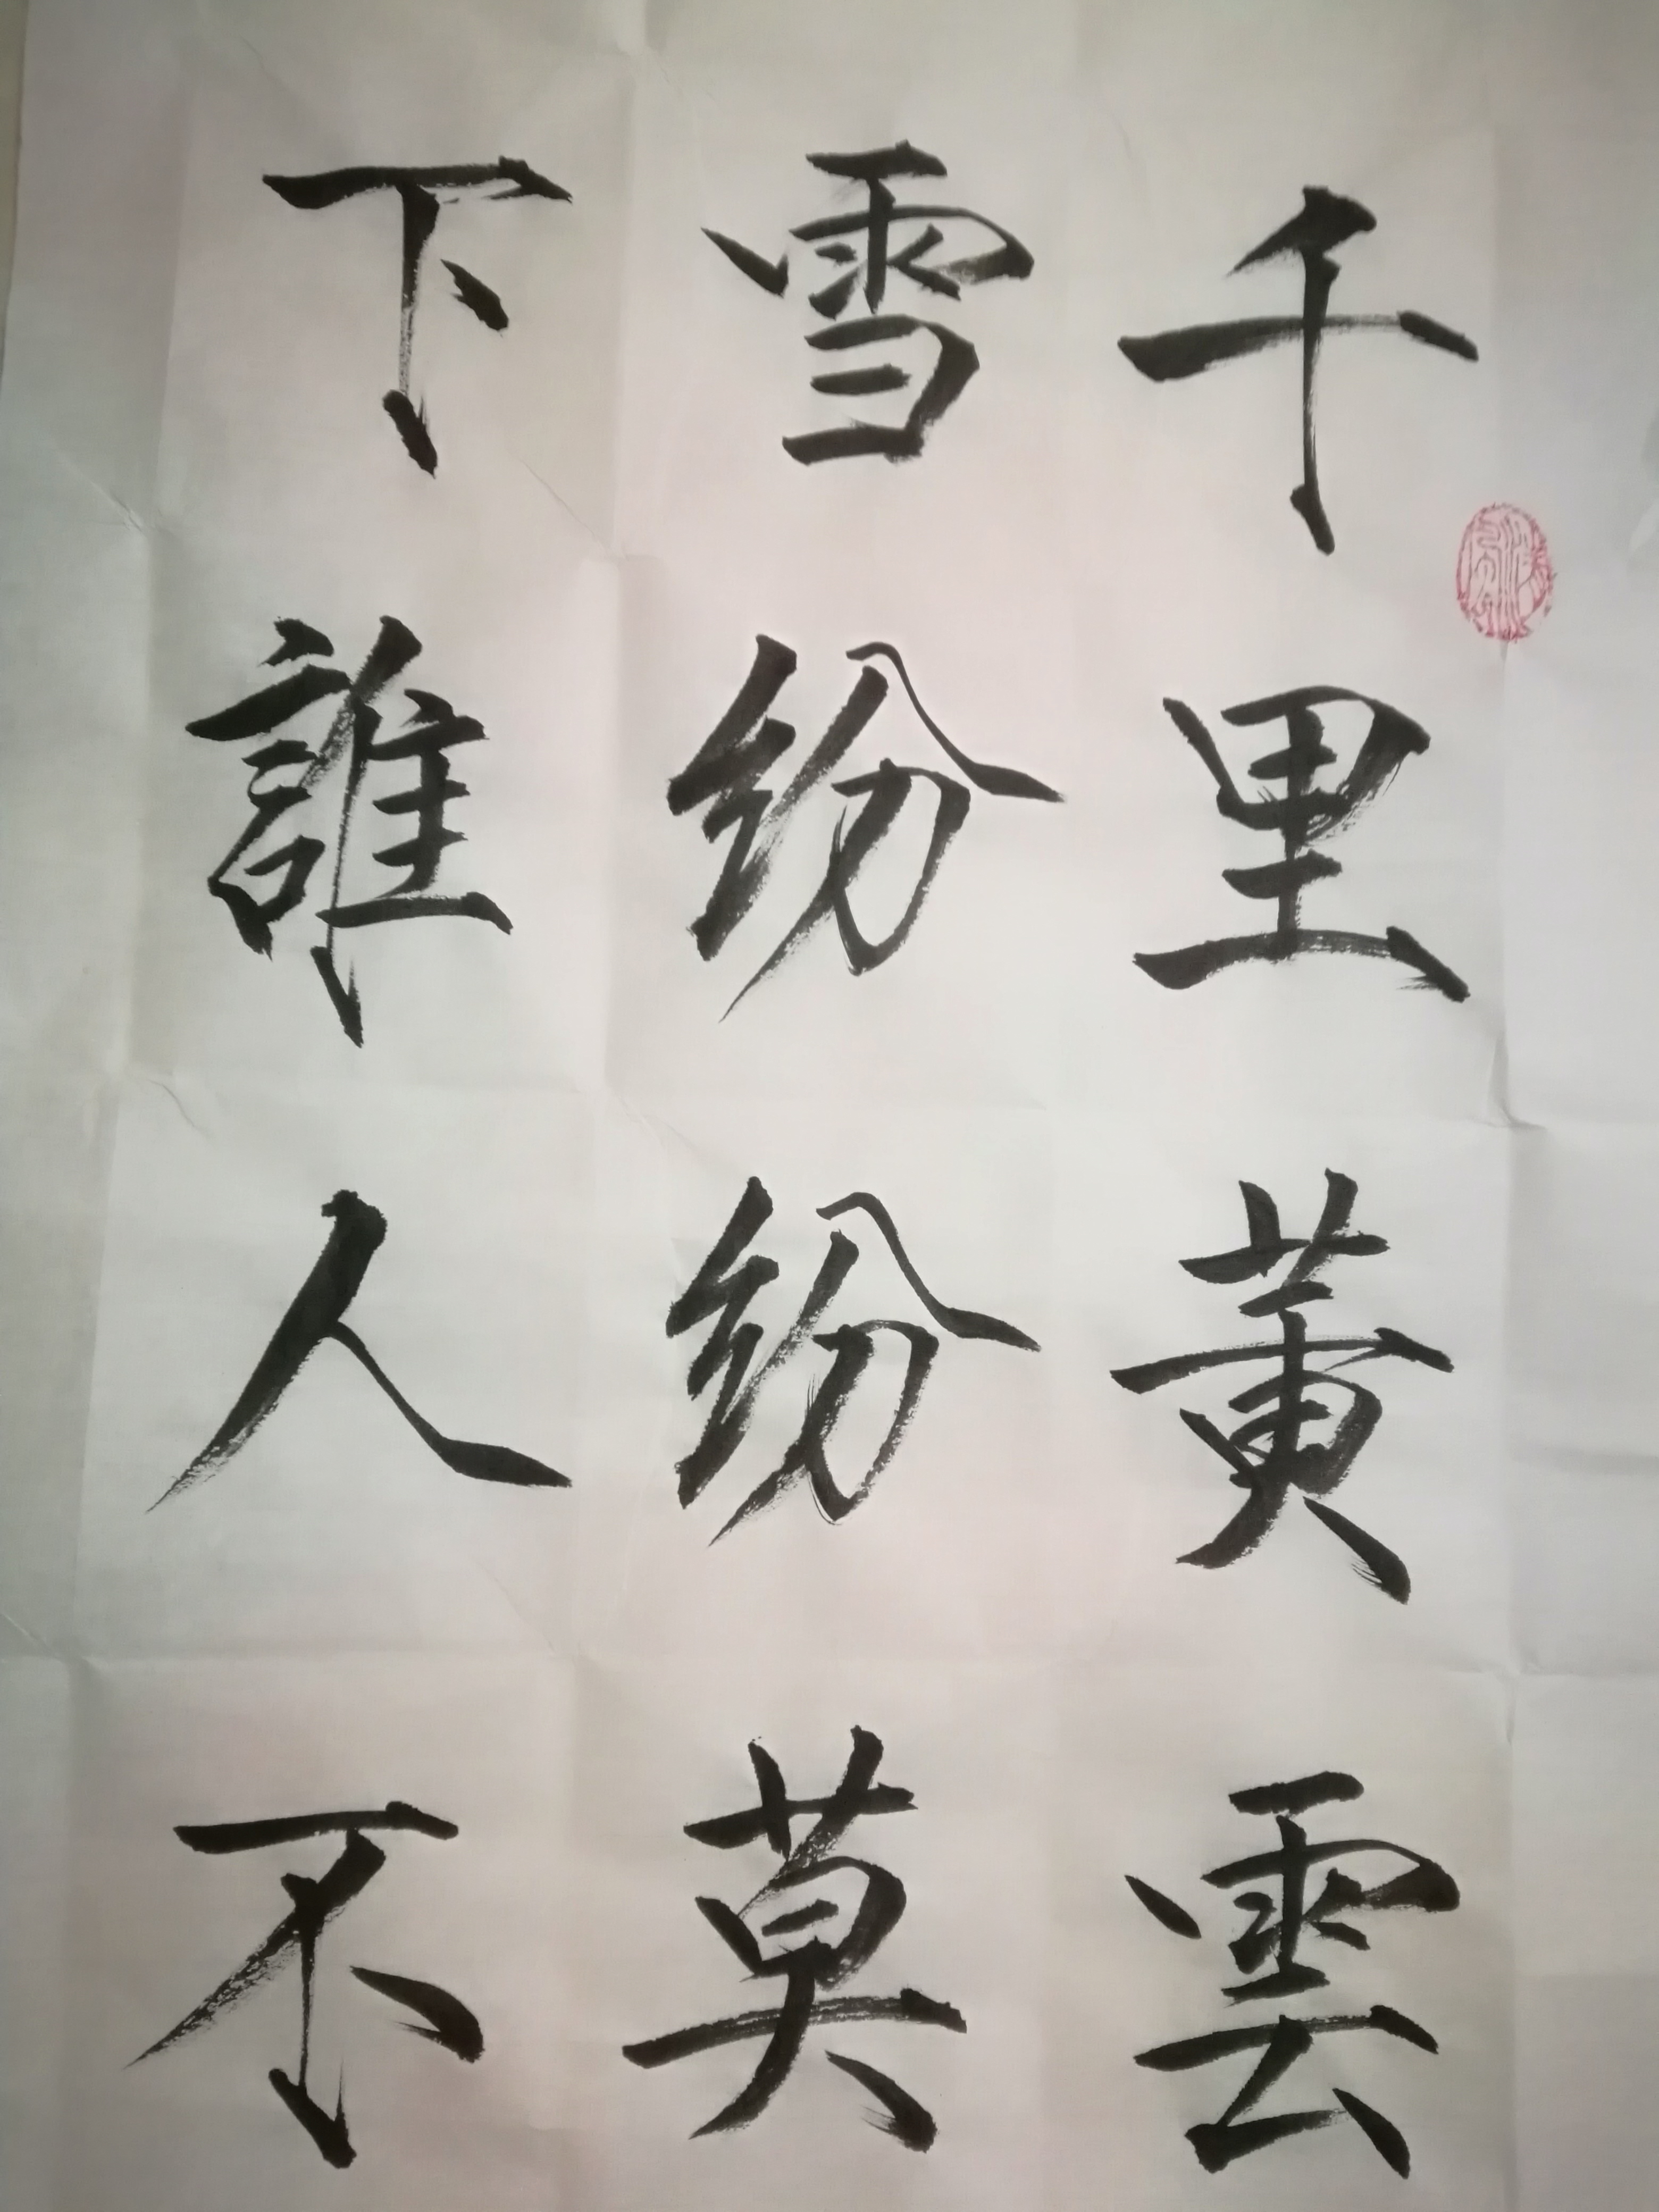 千里黄雲
雪紛紛莫
下誰人不